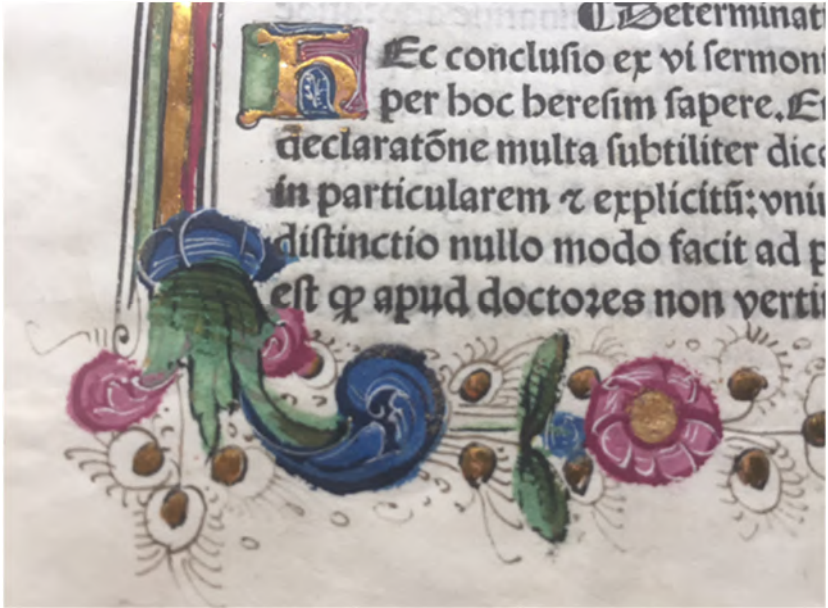 ¶ Determinat
HEc concluſio ex vi ſermon
per hoc hereſim ſapere. E
declaratōne multa ſubtiliter dic
in particularem ⁊ explicitū: vniu
diſtinctio nullo modo facit ad p
eſt ꝙ apud doctoꝛes non verti